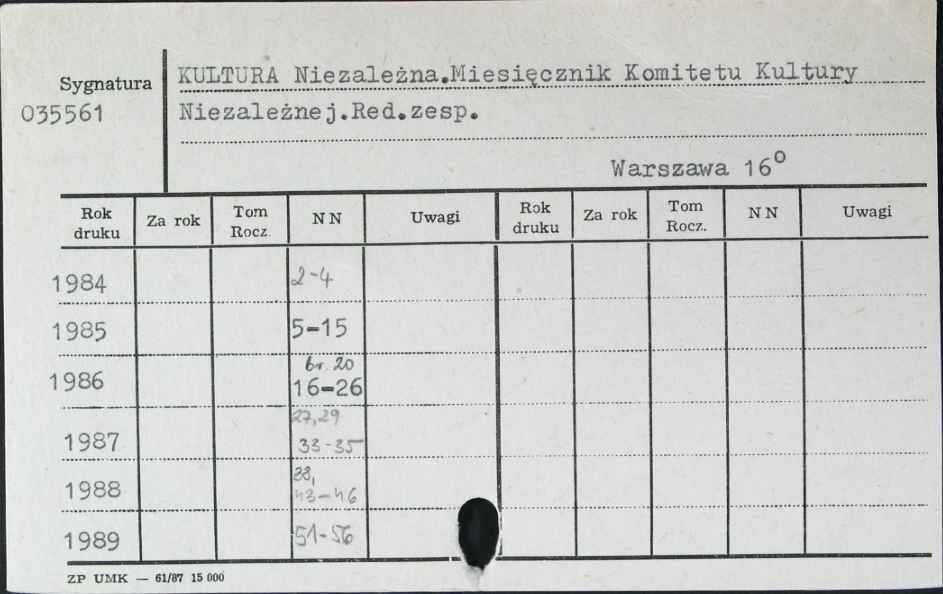 Sygnatura
035561
KULTURA Niezależna.Miesięcznik Komitetu Kultury
Niezależnej.Red.zesp.
Warszawa 16⁰
Rok druku Za rok Tom Rocz. N N Uwagi Rok druku Za rok Tom Rocz. N N Uwagi
1984 2-4
1985 5-15
br. 20
1986 16-26
27,29
1987 33-35
38,
1988 43-46
1989 51-56
ZP UMK — 61/87 15 000